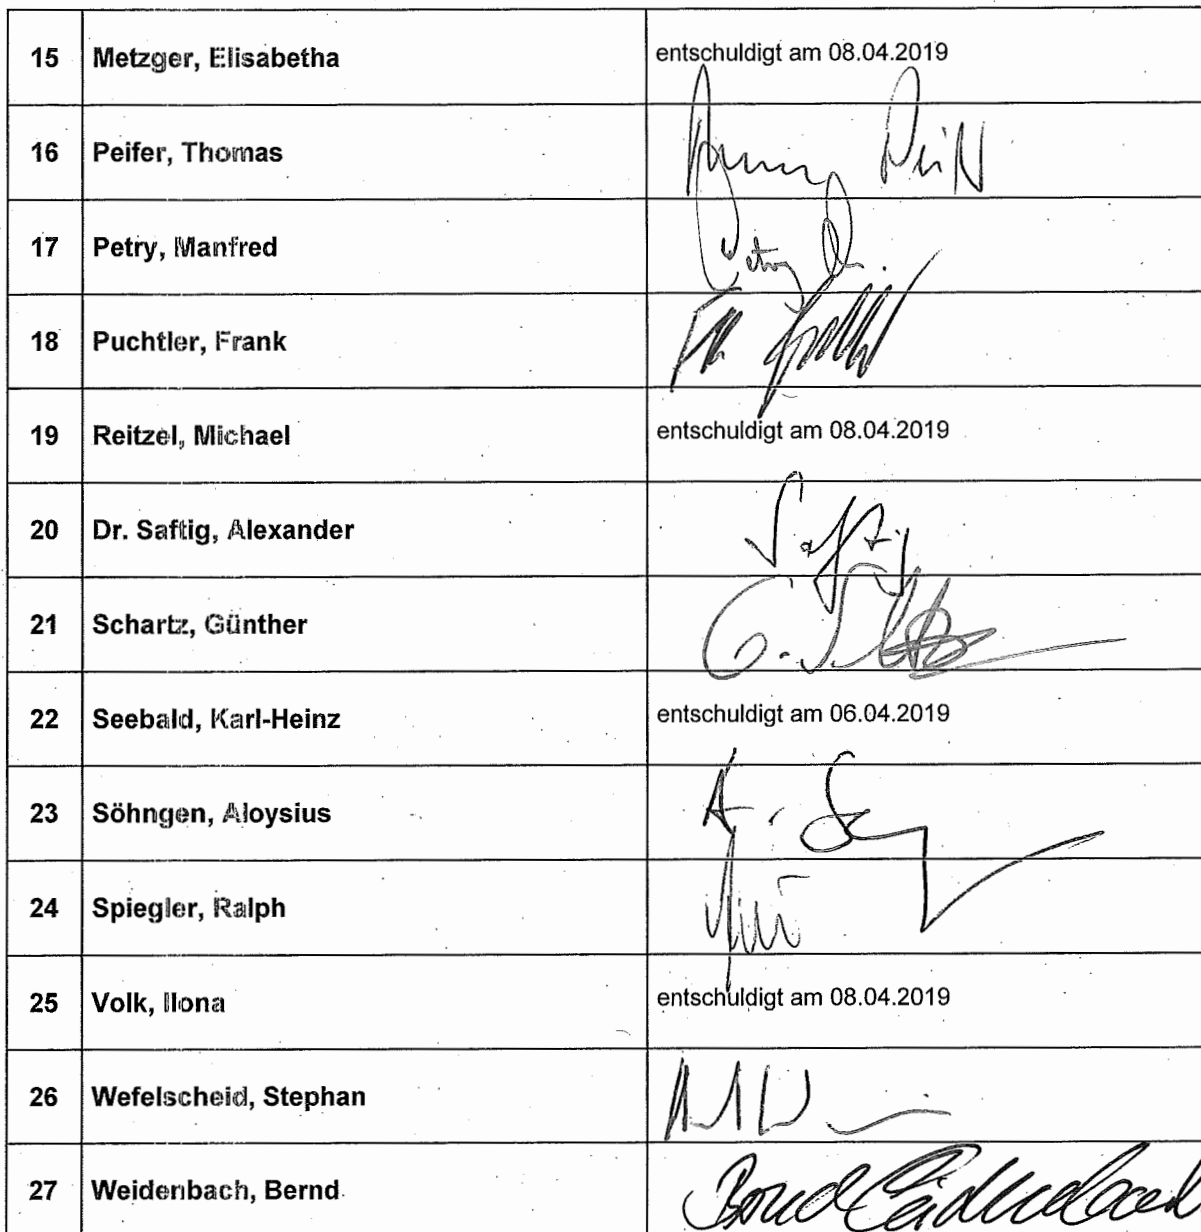 15 Metzger, Elisabetha entschuldigt am 08.04.2019
16 Peifer, Thomas
17 Petry, Manfred
18 Puchtler, Frank
19 Reitzel, Michael entschuldigt am 08.04.2019
20 Dr. Saftig, Alexander Saftig
21 Schartz, Günther
22 Seebald, Karl-Heinz entschuldigt am 06.04.2019
23 Söhngen, Aloysius
24 Spiegler, Ralph
25 Volk, Ilona entschuldigt am 08.04.2019
26 Wefelscheid, Stephan
27 Weidenbach, Bernd Bernd Weidenbach